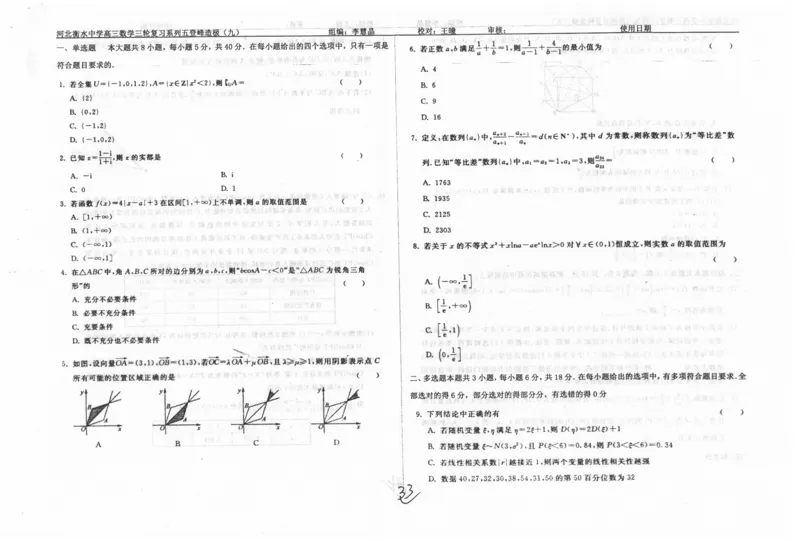 河北衡水中学高三数学三轮复习系列五登峰造极（九）
组编：李慧晶
校对：王臻
审核：
使用日期
一、单选题 本大题共8小题,每小题5分,共40分.在每小题给出的四个选项中,只有一项是
符合题目要求的.
1. 若全集U={-1,0,1,2},A={x∈Z|x²<2},则∁UA= ( )
A. {2}
B. {0,2}
C. {-1,2}
D. {-1,0,2}
2. 已知z=(1-i)/(1+i),则z的实部是 ( )
A. -i
B. i
C. 0
D. 1
3. 若函数f(x)=4|x-a|+3在区间[1,+∞)上不单调,则a的取值范围是 ( )
A. [1,+∞)
B. (1,+∞)
C. (-∞,1)
D. (-∞,1]
4. 在△ABC中,角A,B,C所对的边分别为a,b,c,则"bcosA-c<0"是"△ABC为锐角三角
形"的 ( )
A. 充分不必要条件
B. 必要不充分条件
C. 充要条件
D. 既不充分也不必要条件
5. 如图,设向量OA=(3,1),OB=(1,3),若OC=λOA+μOB,且λ≥μ≥1,则用阴影表示点C
所有可能的位置区域正确的是 ( )
y B A O x
y B A O x
y B A O x
y B A O x
A B C D
6. 若正数a,b满足1/a+1/b=1,则1/(a-1)+4/(b-1)的最小值为 ( )
A. 4
B. 6
C. 9
D. 16
7. 定义:在数列{aₙ}中,aₙ₊₂/aₙ₊₁-aₙ₊₁/aₙ=d(n∈N*),其中d为常数,则称数列{aₙ}为"等比差"数
列.已知"等比差"数列{aₙ}中,a₁=a₂=1,a₃=3,则 = ( )
A. 1763
B. 1935
C. 2125
D. 2303
8. 若关于x的不等式x²+xlna-aeˣlnx>0对∀x∈(0,1)恒成立,则实数a的取值范围为
( )
A. (-∞,1/e]
B. [1/e,+∞)
C. [1/e,1)
D. (0,1/e]
二、多选题本题共3小题,每小题6分,共18分.在每小题给出的选项中,有多项符合题目要求.全
部选对的得6分,部分选对的得部分分,有选错的得0分
9. 下列结论中正确的有 ( )
A. 若随机变量ξ,η满足η=2ξ+1,则D(η)=2D(ξ)+1
B. 若随机变量ξ~N(3,σ²),且P(ξ<6)=0.84,则P(3<ξ<6)=0.34
C. 若线性相关系数|r|越接近1,则两个变量的线性相关性越强
D. 数据40,27,32,30,38,54,31,50的第50百分位数为32
33